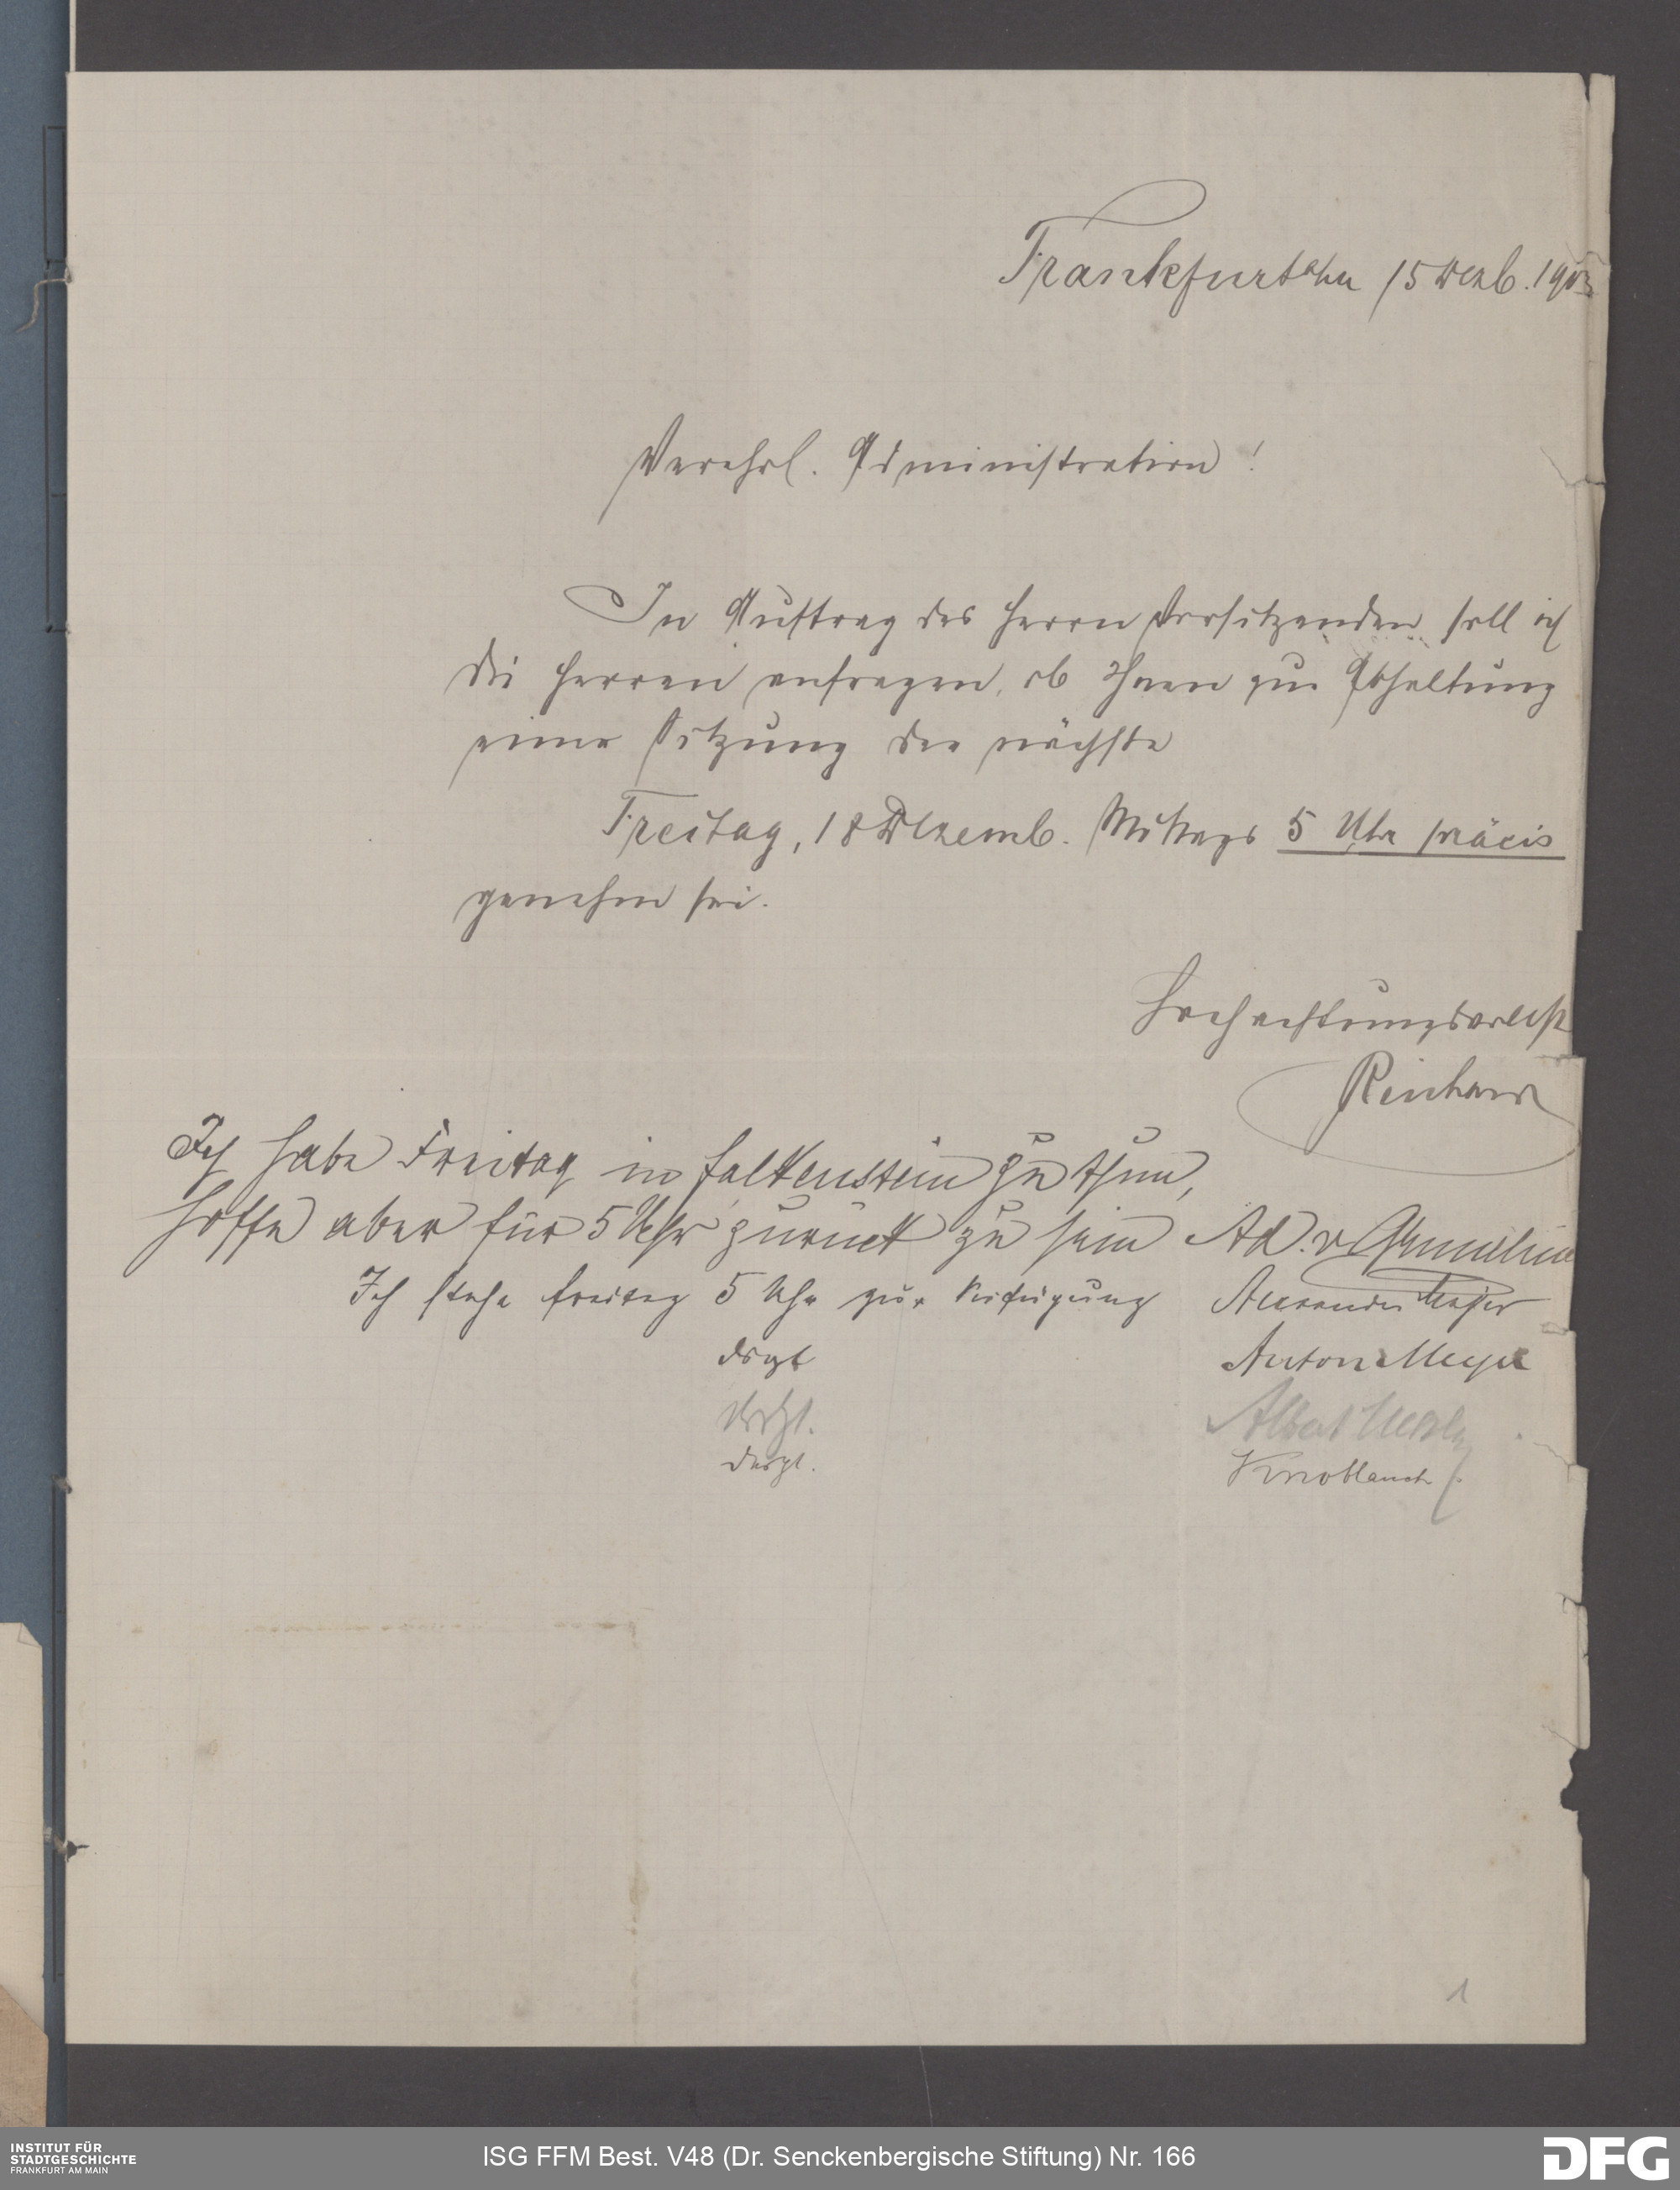 Frankfurt a/m 15 Dezb. 1903
Verehrl. Administration!
Im Auftrag des Herrn Vorsitzenden soll ich
die Herren anfragen, ob Ihnen zur Abhaltung
einer Sitzung der nächste
Freitag, 18 Dezemb. Mittags 5 Uhr präcis
genehm sei.
Hochachtungsvollst
Reinhard
Ich habe Freitag in Falkenstein zu thun,
hoffe aber für 5 Uhr zurück zu sein Ad. v
Ich stehe Freitag 5 Uhr zur Verfügung Alexander Majer
dsgl Anton Meyer
dsgl. Albert
dsgl. Knoblauch
1
INSTITUT FÜR
STADTGESCHICHTE
FRANKFURT AM MAIN
ISG FFM Best. V48 (Dr. Senckenbergische Stiftung) Nr. 166
DFG